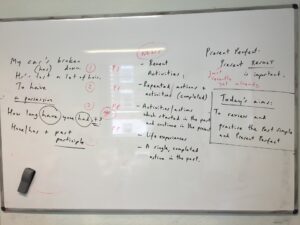 My car's broken
(has) down. (1)
He's lost a lot of hair.
To have (2)
a possession (3)
How long have you had it?
Have/has + past
participle
News
- Recent
Activities:
- Repeated actions +
activities (completed)
- Activities/actions
which started in the past
and continue in the present
- Life experiences
- A single, completed
action in the past.
Present Perfect:
Present RESULT
is important.
Just
recently
yet already
Today's aims:
To review and
practice the Past simple
and Present Perfect